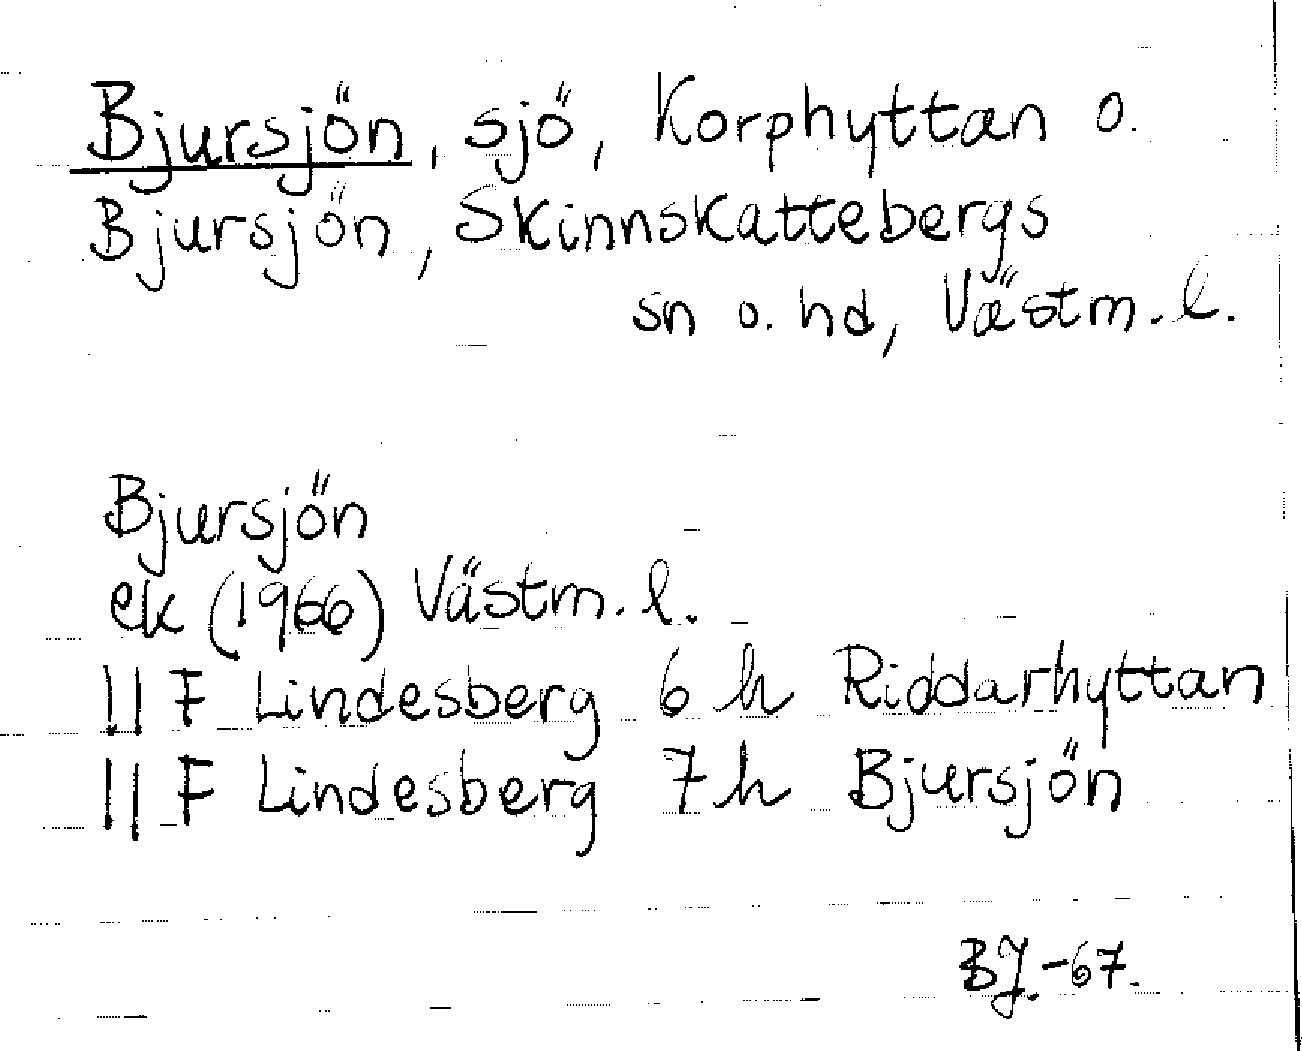 Bjursjön, sjö, Korphyttan o.
Bjursjön, Skinnskattebergs
sn o. hd, Västm. l.
Bjursjön
ek (1966) Västm. l.
11 F Lindesberg 6 h Riddarhyttan
11 F Lindesberg 7 h Bjursjön
BJ.-67.